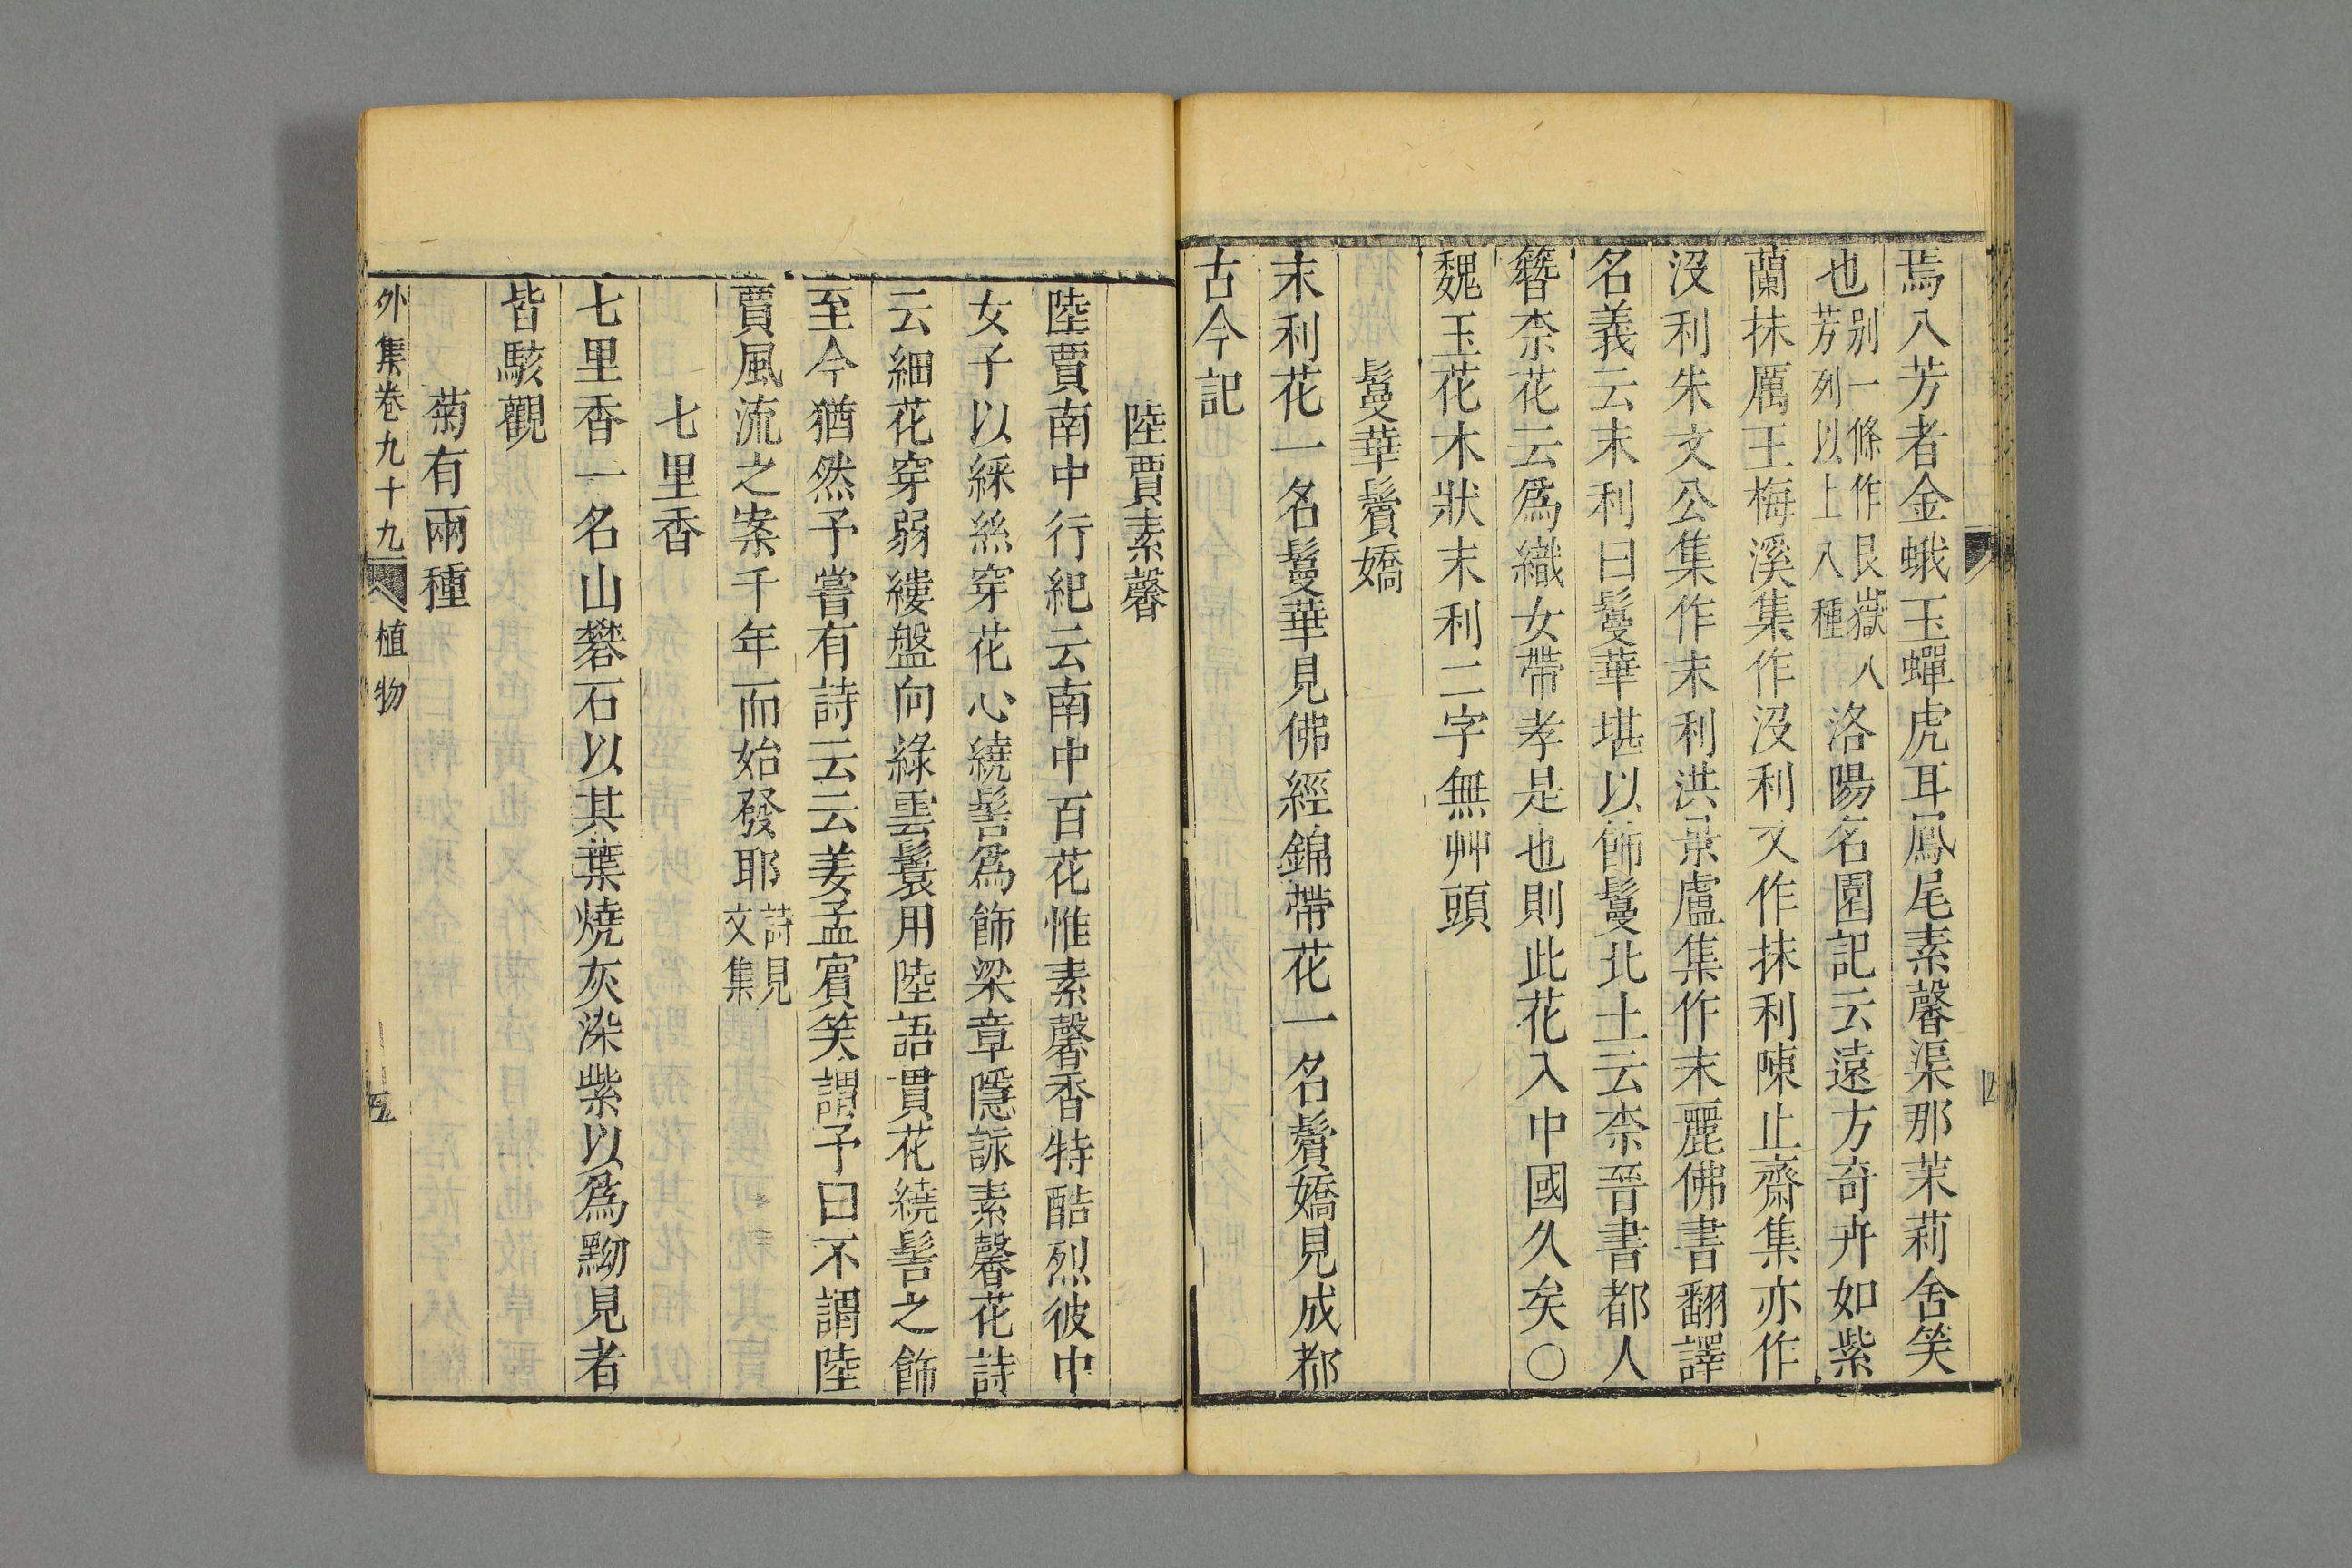 焉八芳者金蛾玉蟬虎耳鳳尾素馨渠那茉莉含笑
也别一條作艮嶽八芳列以上八種洛陽名園記云遠方奇卉如紫
蘭抹厲王梅溪集作沒利又作抹利陳止齋集亦作
沒利朱文公集作末利洪景盧集作末麗佛書翻譯
名義云末利曰鬘華堪以飾鬘北土云柰晉書都人
簪柰花云爲織女帶孝是也則此花入中國久矣〇
魏玉花木狀末利二字無艸頭
鬘華鬢嬌
末利花一名鬘華見佛經錦帶花一名鬢嬌見成都
古今記
四
陸賈素馨
陸賈南中行紀云南中百花惟素馨香特酷烈彼中
女子以綵絲穿花心繞髻爲飾梁章隱詠素馨花詩
云細花穿弱縷盤向綠雲鬟用陸語貫花繞髻之飾
至今猶然予嘗有詩云云姜孟賓笑謂予曰不謂陸
賈風流之案千年而始發耶詩見文集
七里香
七里香一名山礬石以其葉燒灰染紫以爲黝見者
皆駭觀
菊有兩種
外集卷九十九 植物 五